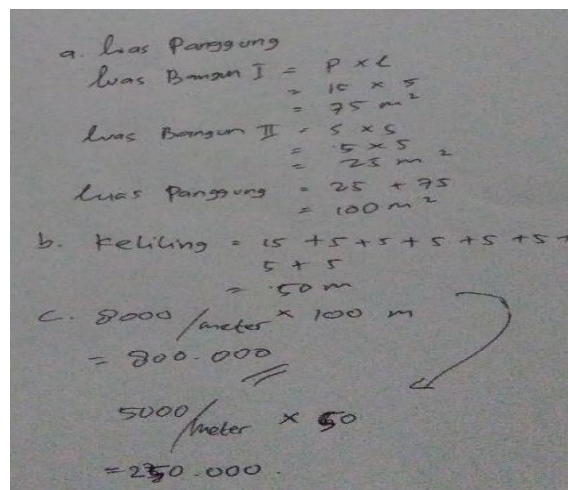 a. Luas Panggung
Luas Bangun I = P x l
= 15 x 5
= 75 m²
Luas Bangun II = s x s
= 5 x 5
= 25 m²
Luas Panggung = 25 + 75
= 100 m²
b. Keliling = 15 + 5 + 5 + 5 + 5 + 5 +
5 + 5
= 50 m
c. 8000/meter x 100 m
= 800.000
5000/meter x 50
= 250.000.